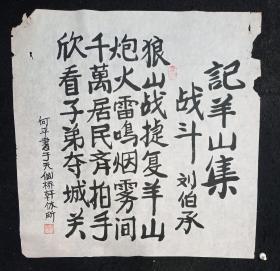 記羊山集
战斗 刘伯承
狼山战捷复羊山
炮火雷鸣烟雾间
千萬居民齐拍手
欣看子弟夺城关
何平書于天個桥轩休所